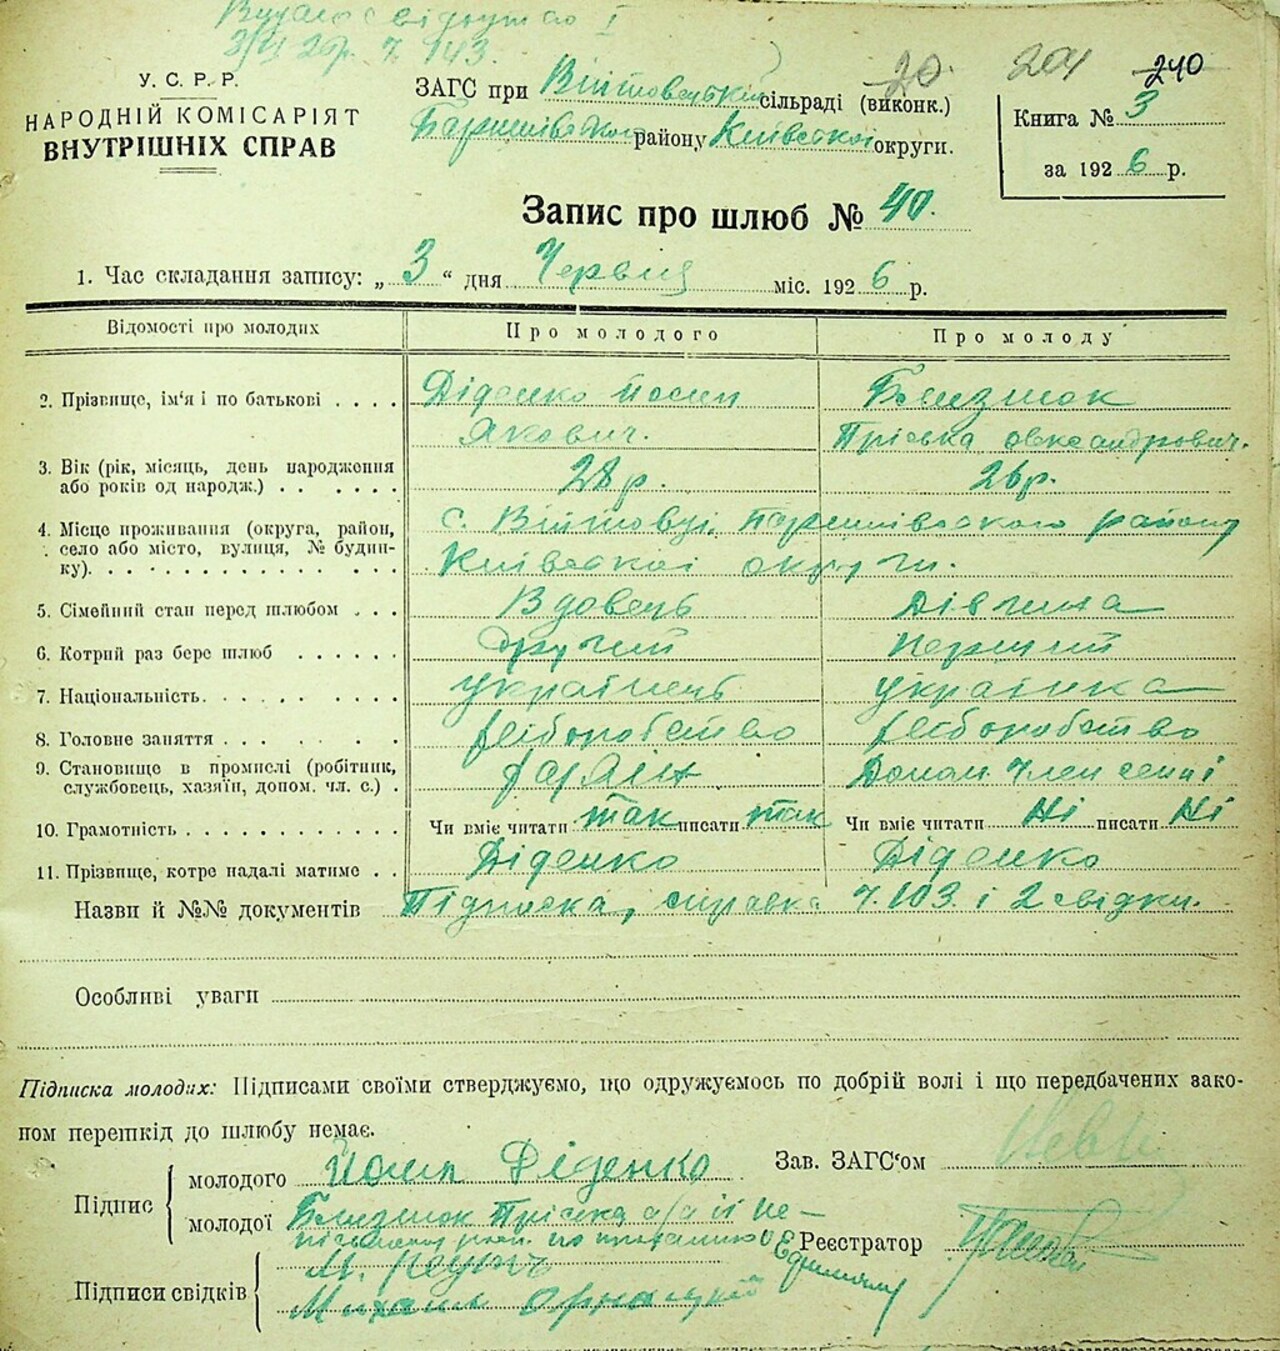 Видано свідоцтво
У. С. Р. Р.
НАРОДНІЙ КОМІСАРІЯТ
ВНУТРІШНІХ СПРАВ
20. 204 240
ЗАГС при Війтовецькій сільраді (виконк.)
Баришівського району Київської округи.
Книга № 3
за 1926 р.
Запис про шлюб № 40.
1. Час складання запису: „3“ дня Червня міс. 1926 р.
Відомості про молодих Про молодого Про молоду
2. Прізвище, ім'я і по батькові . . . . Діденко Йосип Близнюк
Якович. Пріська Олександрович.
3. Вік (рік, місяць, день народження
або років од народж.) . . . . . . 28 р. 26 р.
4. Місце проживання (округа, район,
село або місто, вулиця, № будин-
ку). . . . . . . . . . . . . . .
с. Війтовці, Баришівського району
Київської округи.
5. Сімейний стан перед шлюбом . . . Вдовець Дівчина
6. Котрий раз бере шлюб . . . . . . Другий Перший
7. Національність. . . . . . . . . українець українка
8. Головне заняття . . . . . . . хліборобство хліборобство
9. Становище в промислі (робітник,
службовець, хазяїн, допом. чл. с.) . хазяїн Допом. член семї
10. Грамотність . . . . . . . . . . . Чи вміє читати так писати так Чи вміє читати Ні писати Ні
11. Прізвище, котре надалі матиме . . Діденко Діденко
Назви й №№ документів Підписка, справка ч. 103. і 2 свідки.
Особливі уваги
Підписка молодих: Підписами своїми стверджуємо, що одружуємось по добрій волі і що передбачених зако-
ном перешкід до шлюбу немає.
Підпис
молодого Йосип Діденко
молодої Близнюк Пріська а за її не-
Зав. ЗАГС'ом
Реєстратор
Підписи свідків
Михаль